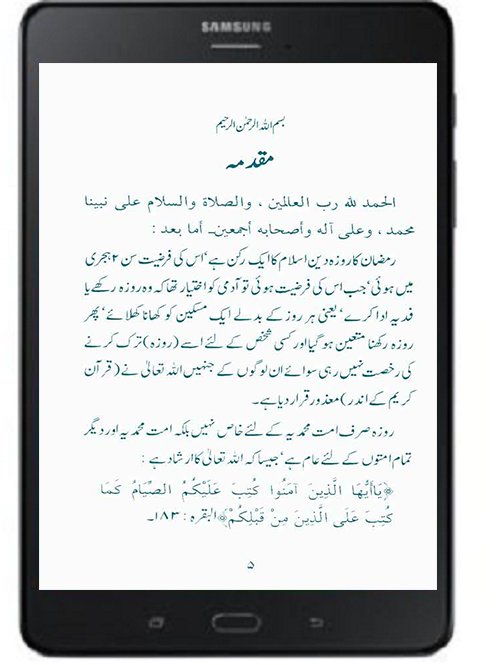 SAMSUNG
بسم الله الرحمٰن الرحيم
مقدمہ
الحمد لله رب العالمين ، والصلاة والسلام على نبينا
محمد ، وعلى آله وأصحابه أجمعين۔ أما بعد :
رمضان کا روزہ دین اسلام کا ایک رکن ہے‘ اس کی فرضیت سن ۲ ہجری
میں ہوئی‘ جب اس کی فرضیت ہوئی تو آدمی کو اختیار تھا کہ وہ روزہ رکھے یا
فدیہ ادا کرے‘ یعنی ہر روز کے بدلے ایک مسکین کو کھانا کھلائے‘ پھر
روزہ رکھنا متعین ہو گیا اور کسی شخص کے لئے اسے (روزہ) ترک کرنے
کی رخصت نہیں رہی سوائے ان لوگوں کے جنہیں اللہ تعالیٰ نے (قرآن
کریم کے اندر) معذور قرار دیا ہے۔
روزہ صرف امت محمدیہ کے لئے خاص نہیں بلکہ امت محمدیہ اور دیگر
تمام امتوں کے لئے عام ہے‘ جیسا کہ اللہ تعالیٰ کا ارشاد ہے :
﴿يَاأَيُّهَا الَّذِينَ آمَنُوا كُتِبَ عَلَيْكُمُ الصِّيَامُ كَمَا
كُتِبَ عَلَى الَّذِينَ مِنْ قَبْلِكُمْ﴾ البقرہ : ۱۸۳۔
۵